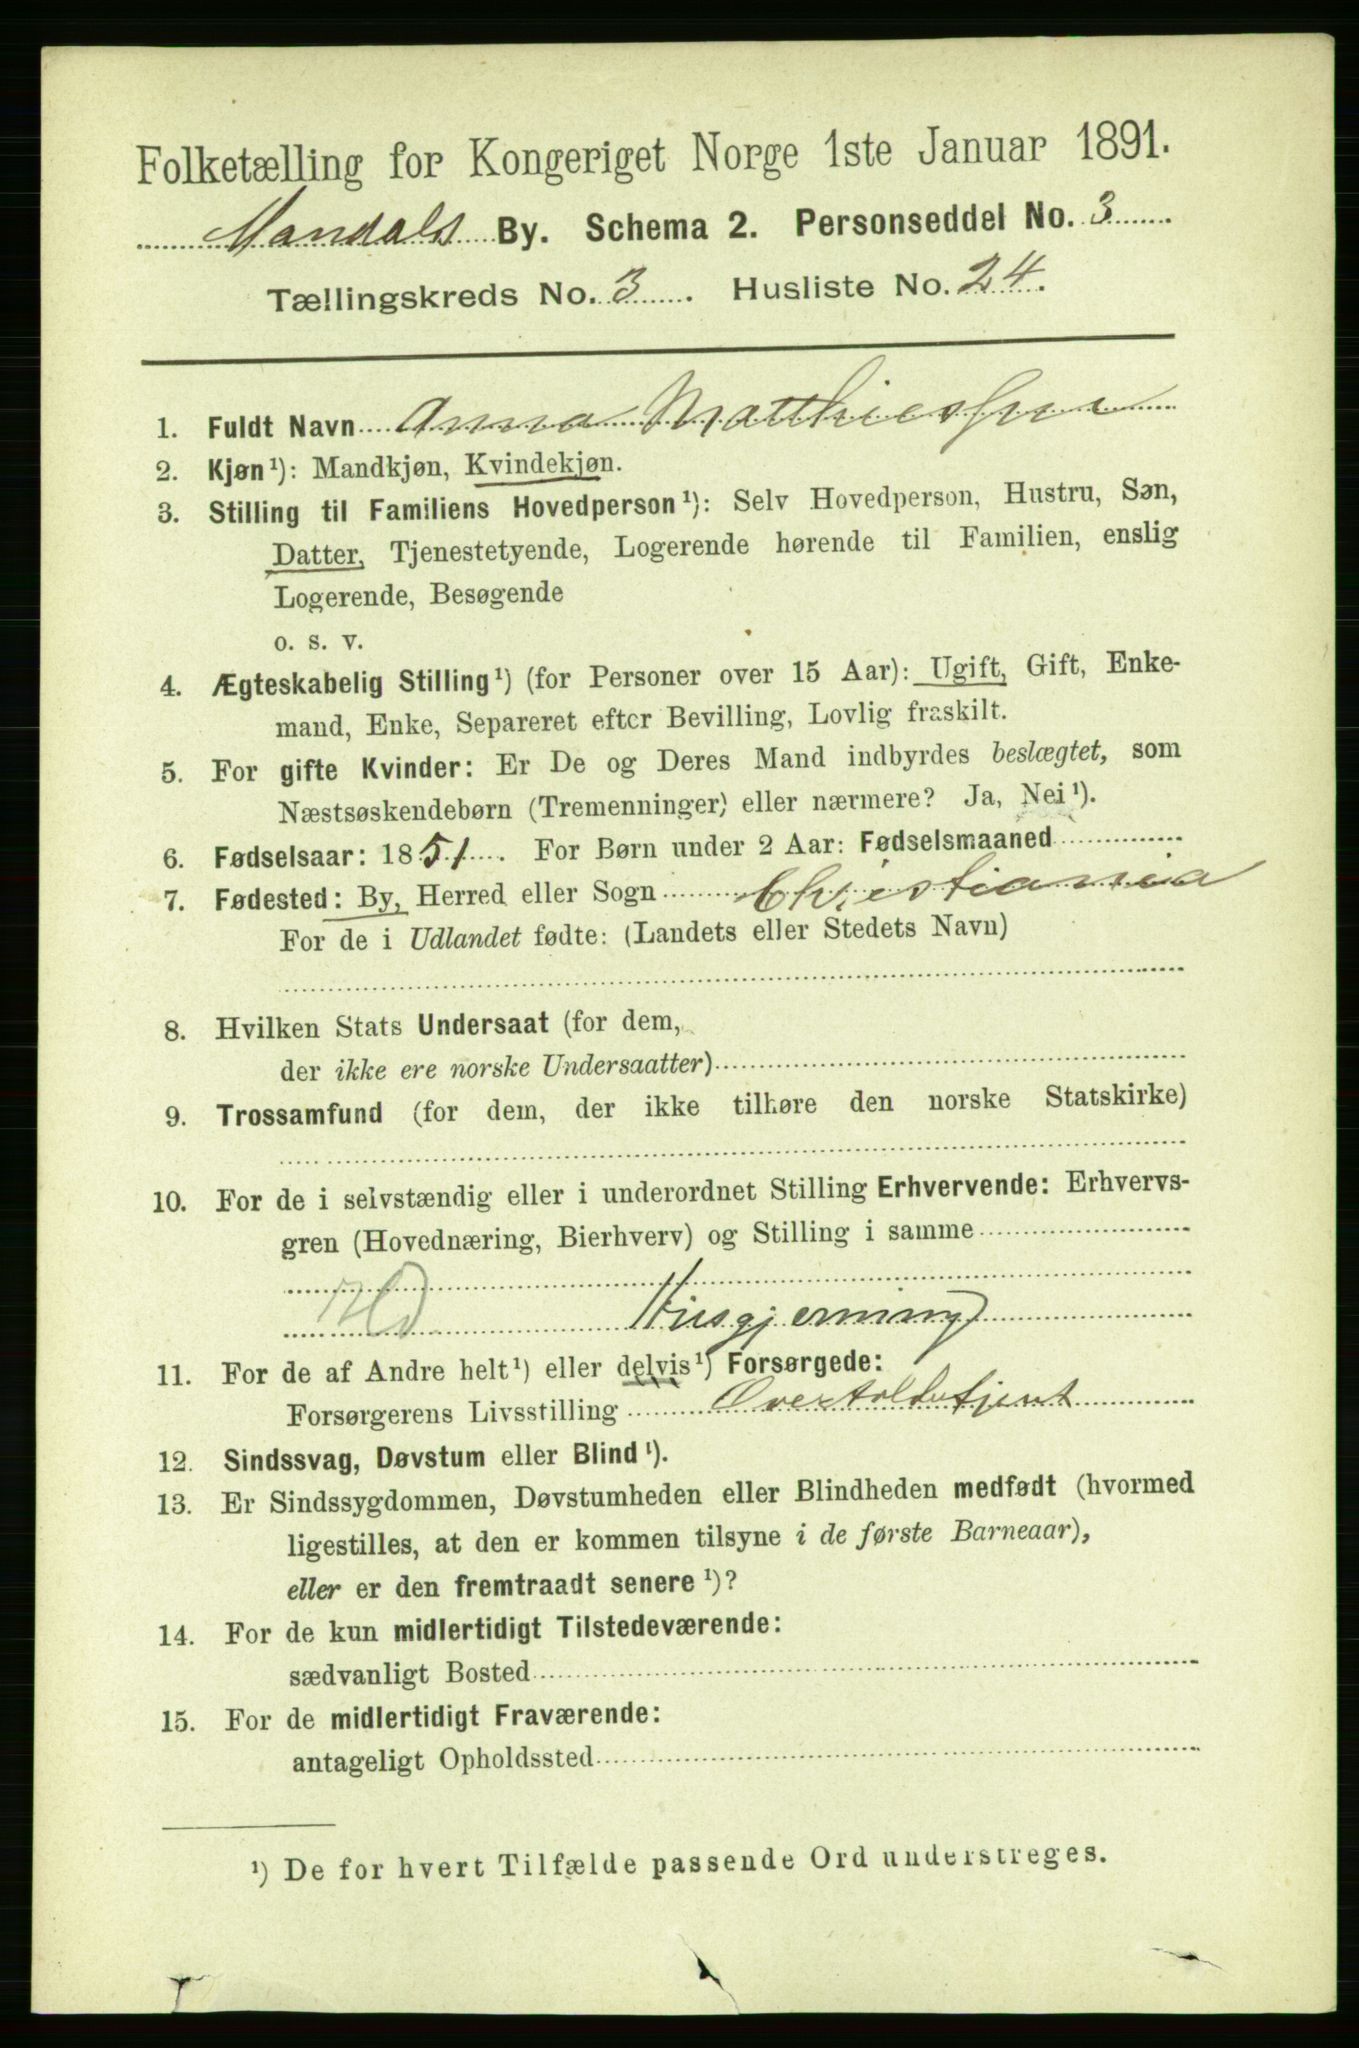 Folketælling for Kongeriget Norge 1ste Januar 1891.
Mandals By. Schema 2. Personseddel No. 3
Tællingskreds No. 3. Husliste No. 24.
1. Fuldt Navn Anna Matthiessen
2. Kjøn¹): Mandkjøn, Kvindekjøn.
3. Stilling til Familiens Hovedperson¹): Selv Hovedperson, Hustru, Søn,
Datter, Tjenestetyende, Logerende hørende til Familien, enslig
Logerende, Besøgende
o. s. v.
4. Ægteskabelig Stilling¹) (for Personer over 15 Aar): Ugift, Gift, Enke-
mand, Enke, Separeret efter Bevilling, Lovlig fraskilt.
5. For gifte Kvinder: Er De og Deres Mand indbyrdes beslægtet, som
Næstsøskendebørn (Tremenninger) eller nærmere? Ja, Nei¹).
6. Fødselsaar: 1851. For Børn under 2 Aar: Fødselsmaaned
7. Fødested: By, Herred eller Sogn Christiania
For de i Udlandet fødte: (Landets eller Stedets Navn)
8. Hvilken Stats Undersaat (for dem,
der ikke ere norske Undersaatter)
9. Trossamfund (for dem, der ikke tilhøre den norske Statskirke)
10. For de i selvstændig eller i underordnet Stilling Erhvervende: Erhvervs-
gren (Hovednæring, Bierhverv) og Stilling i samme
Husgjerning
11. For de af Andre helt¹) eller delvis¹) Forsørgede:
Forsørgerens Livsstilling Overtoldbetjent
12. Sindssvag, Døvstum eller Blind¹).
13. Er Sindssygdommen, Døvstumheden eller Blindheden medfødt (hvormed
ligestilles, at den er kommen tilsyne i de første Barneaar),
eller er den fremtraadt senere¹)?
14. For de kun midlertidigt Tilstedeværende:
sædvanligt Bosted
15. For de midlertidigt Fraværende:
antageligt Opholdssted
¹) De for hvert Tilfælde passende Ord understreges.